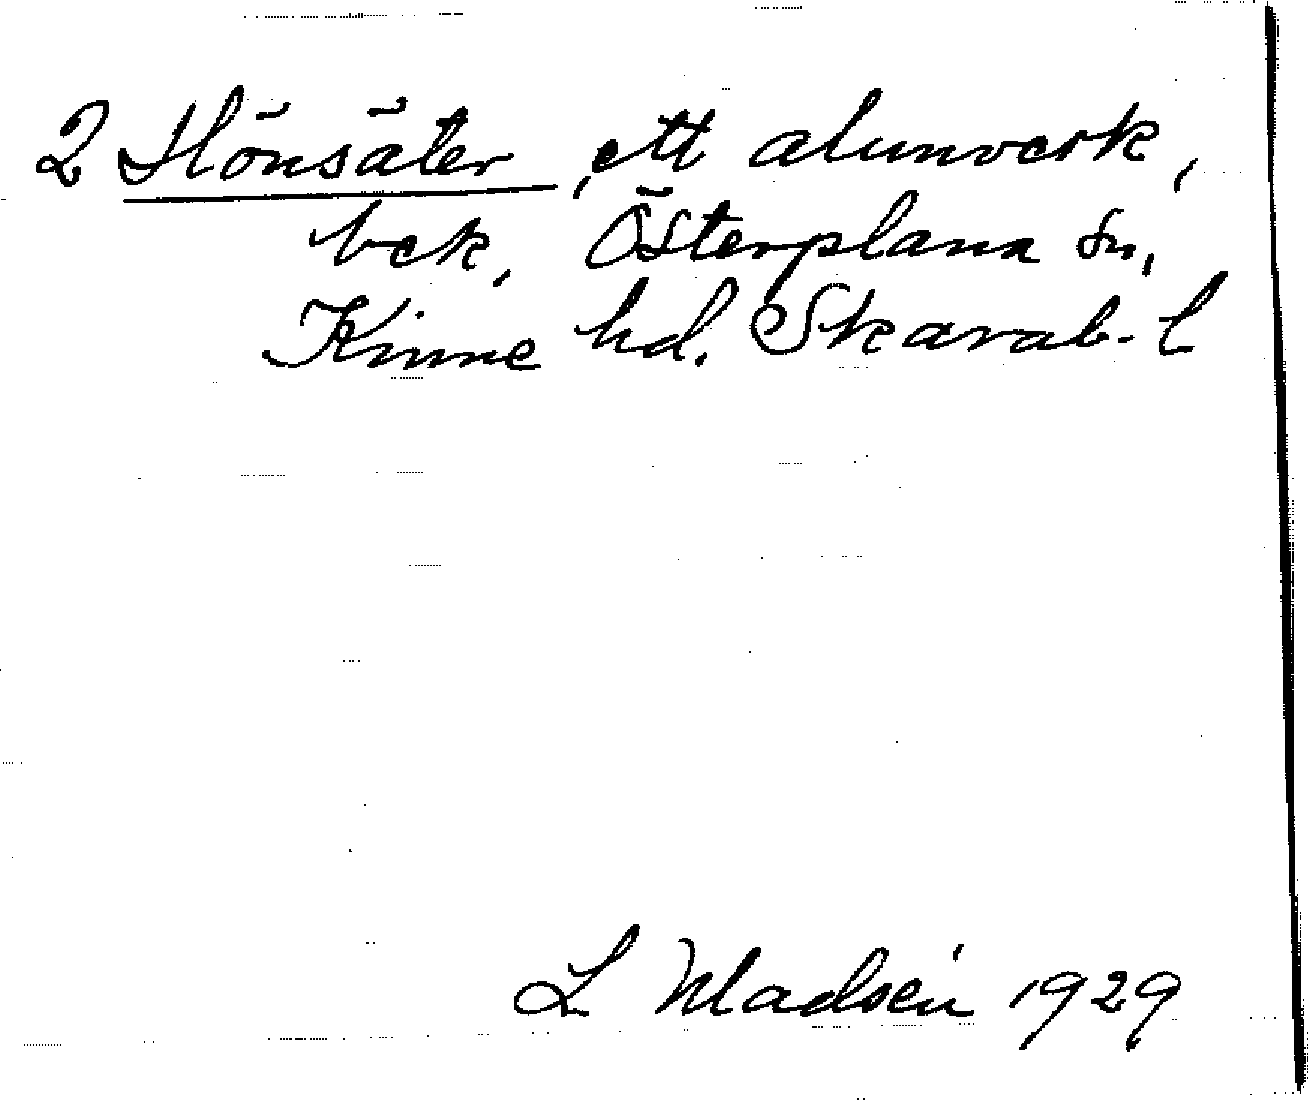 2 Hönsäter, ett alunverk,
bek. Österplana sn,
Kinne hd. Skarab. l
L Madsén 1929